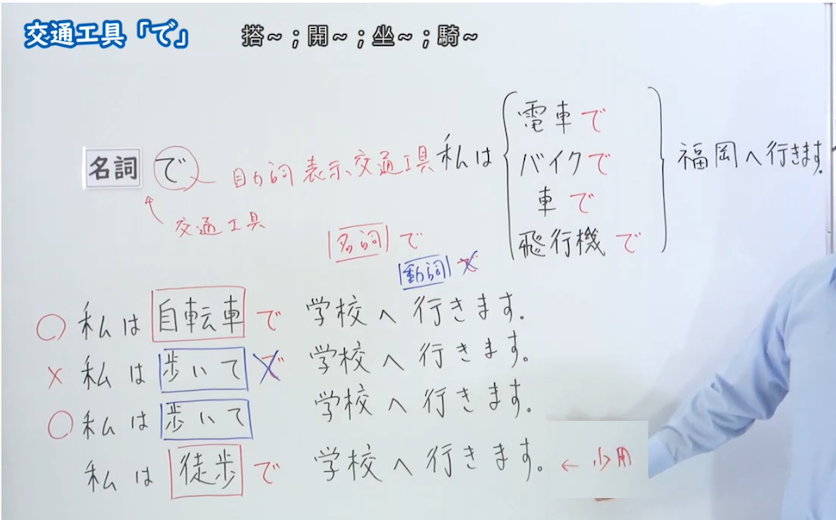 交通工具「で」 搭～；開～；坐～；騎～
名詞 で 助詞 表示交通工具
交通工具
私は 電車で 福岡へ行きます。
バイクで
車で
飛行機で
名詞 で
動詞 で
○ 私は 自転車 で 学校へ行きます。
× 私は 歩いて で 学校へ行きます。
○ 私は 歩いて 学校へ行きます。
私は 徒歩 で 学校へ行きます。 ← 少用